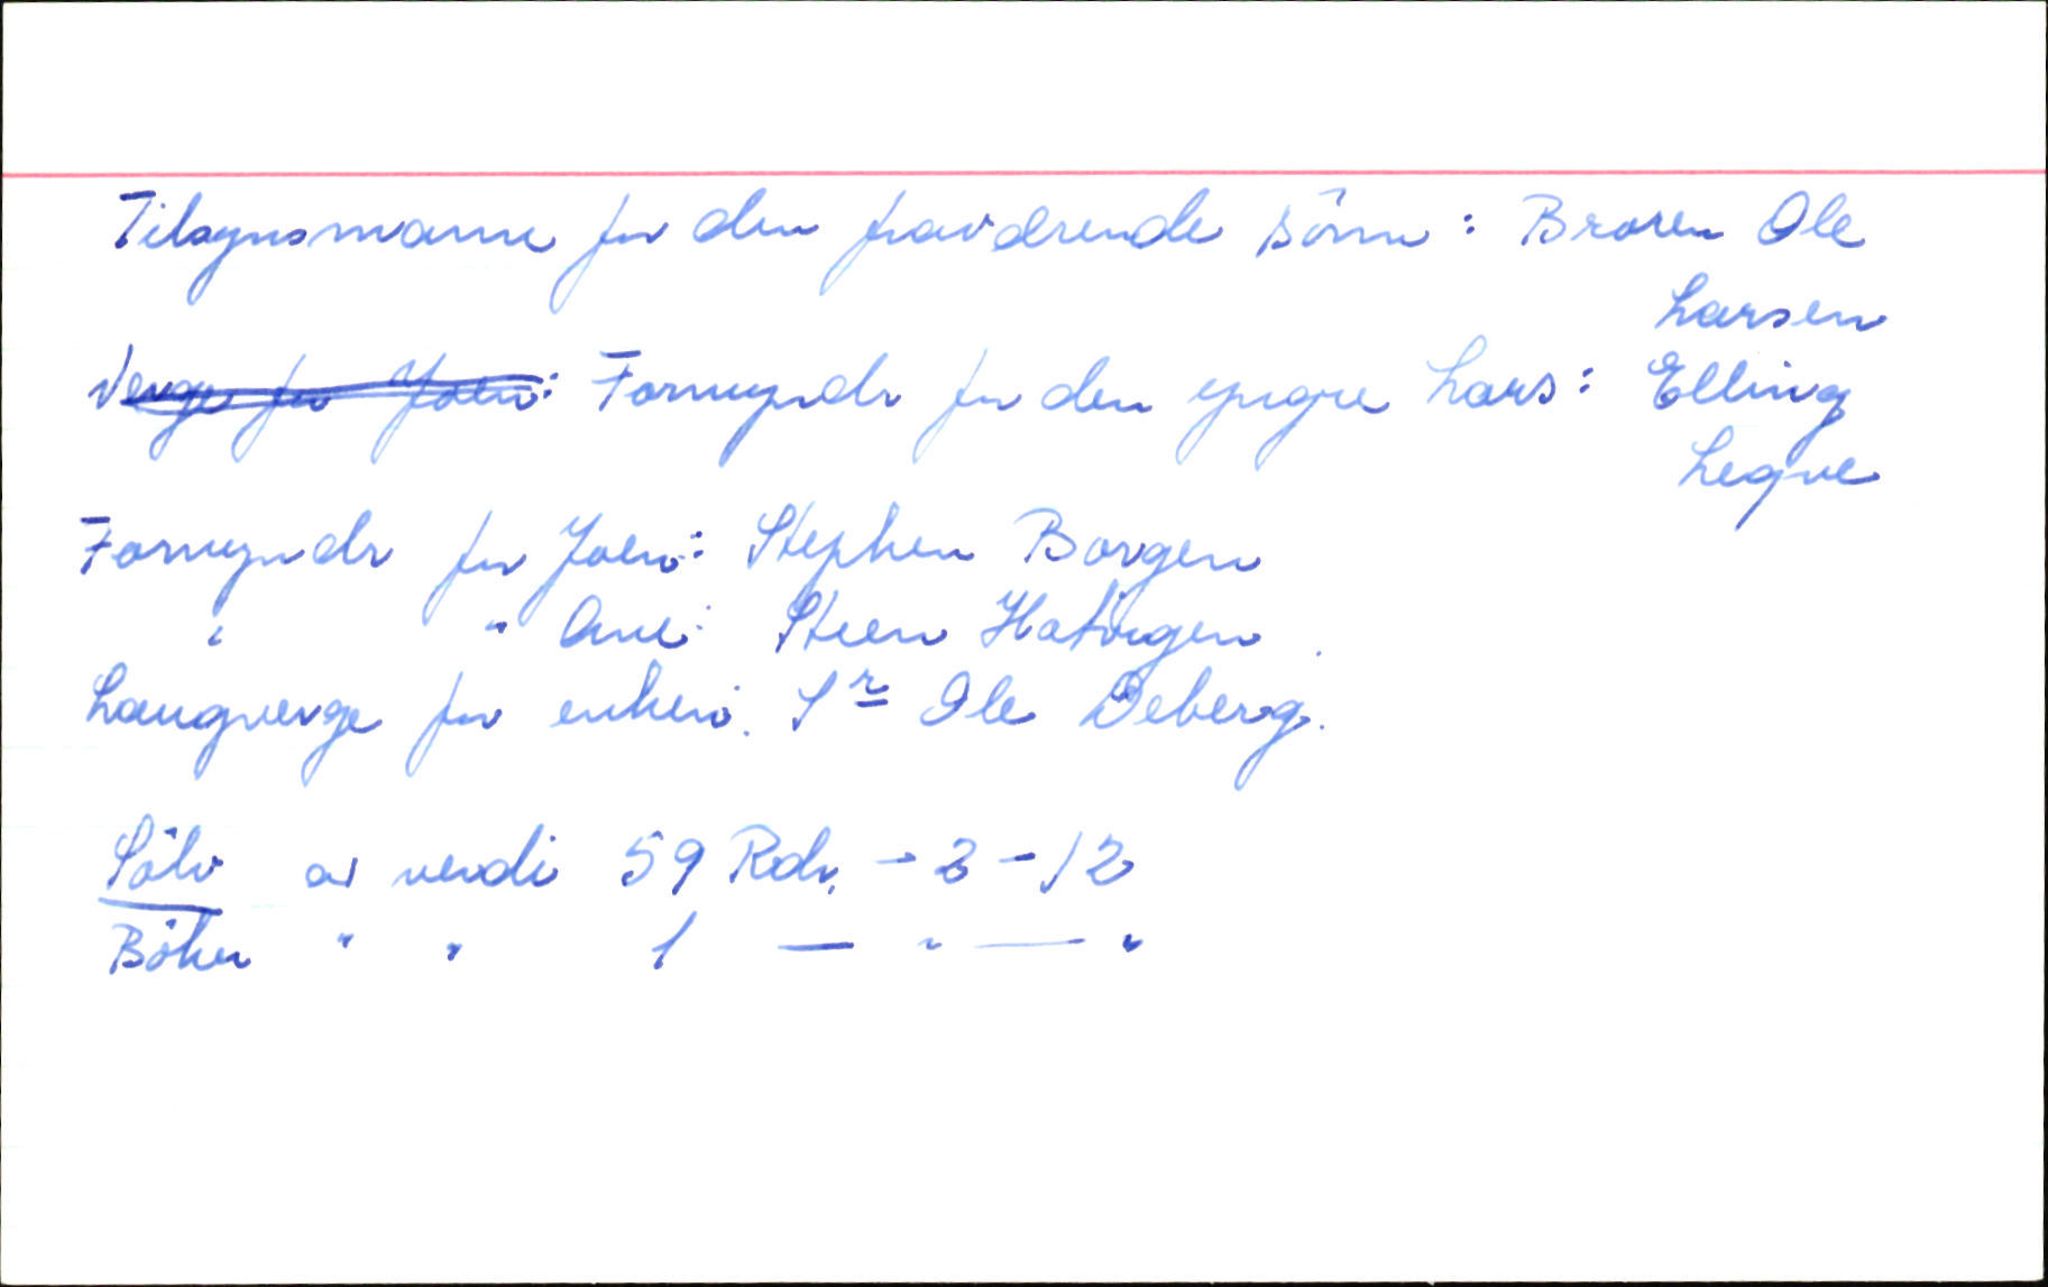 Tilsynsmann for den fraværende sönn: Broren Ole
Larsen
Verge for Joen: Formyndr for den yngre Lars: Elling
Legve
Formyndr for Joen: Stephen Borgen
" " Ane: Steen
Laugverge for enken. Sr Ole Deberg.
Sölv av verdi 59 Rdr. - 3 - 12
Böker " " 1 — " — "